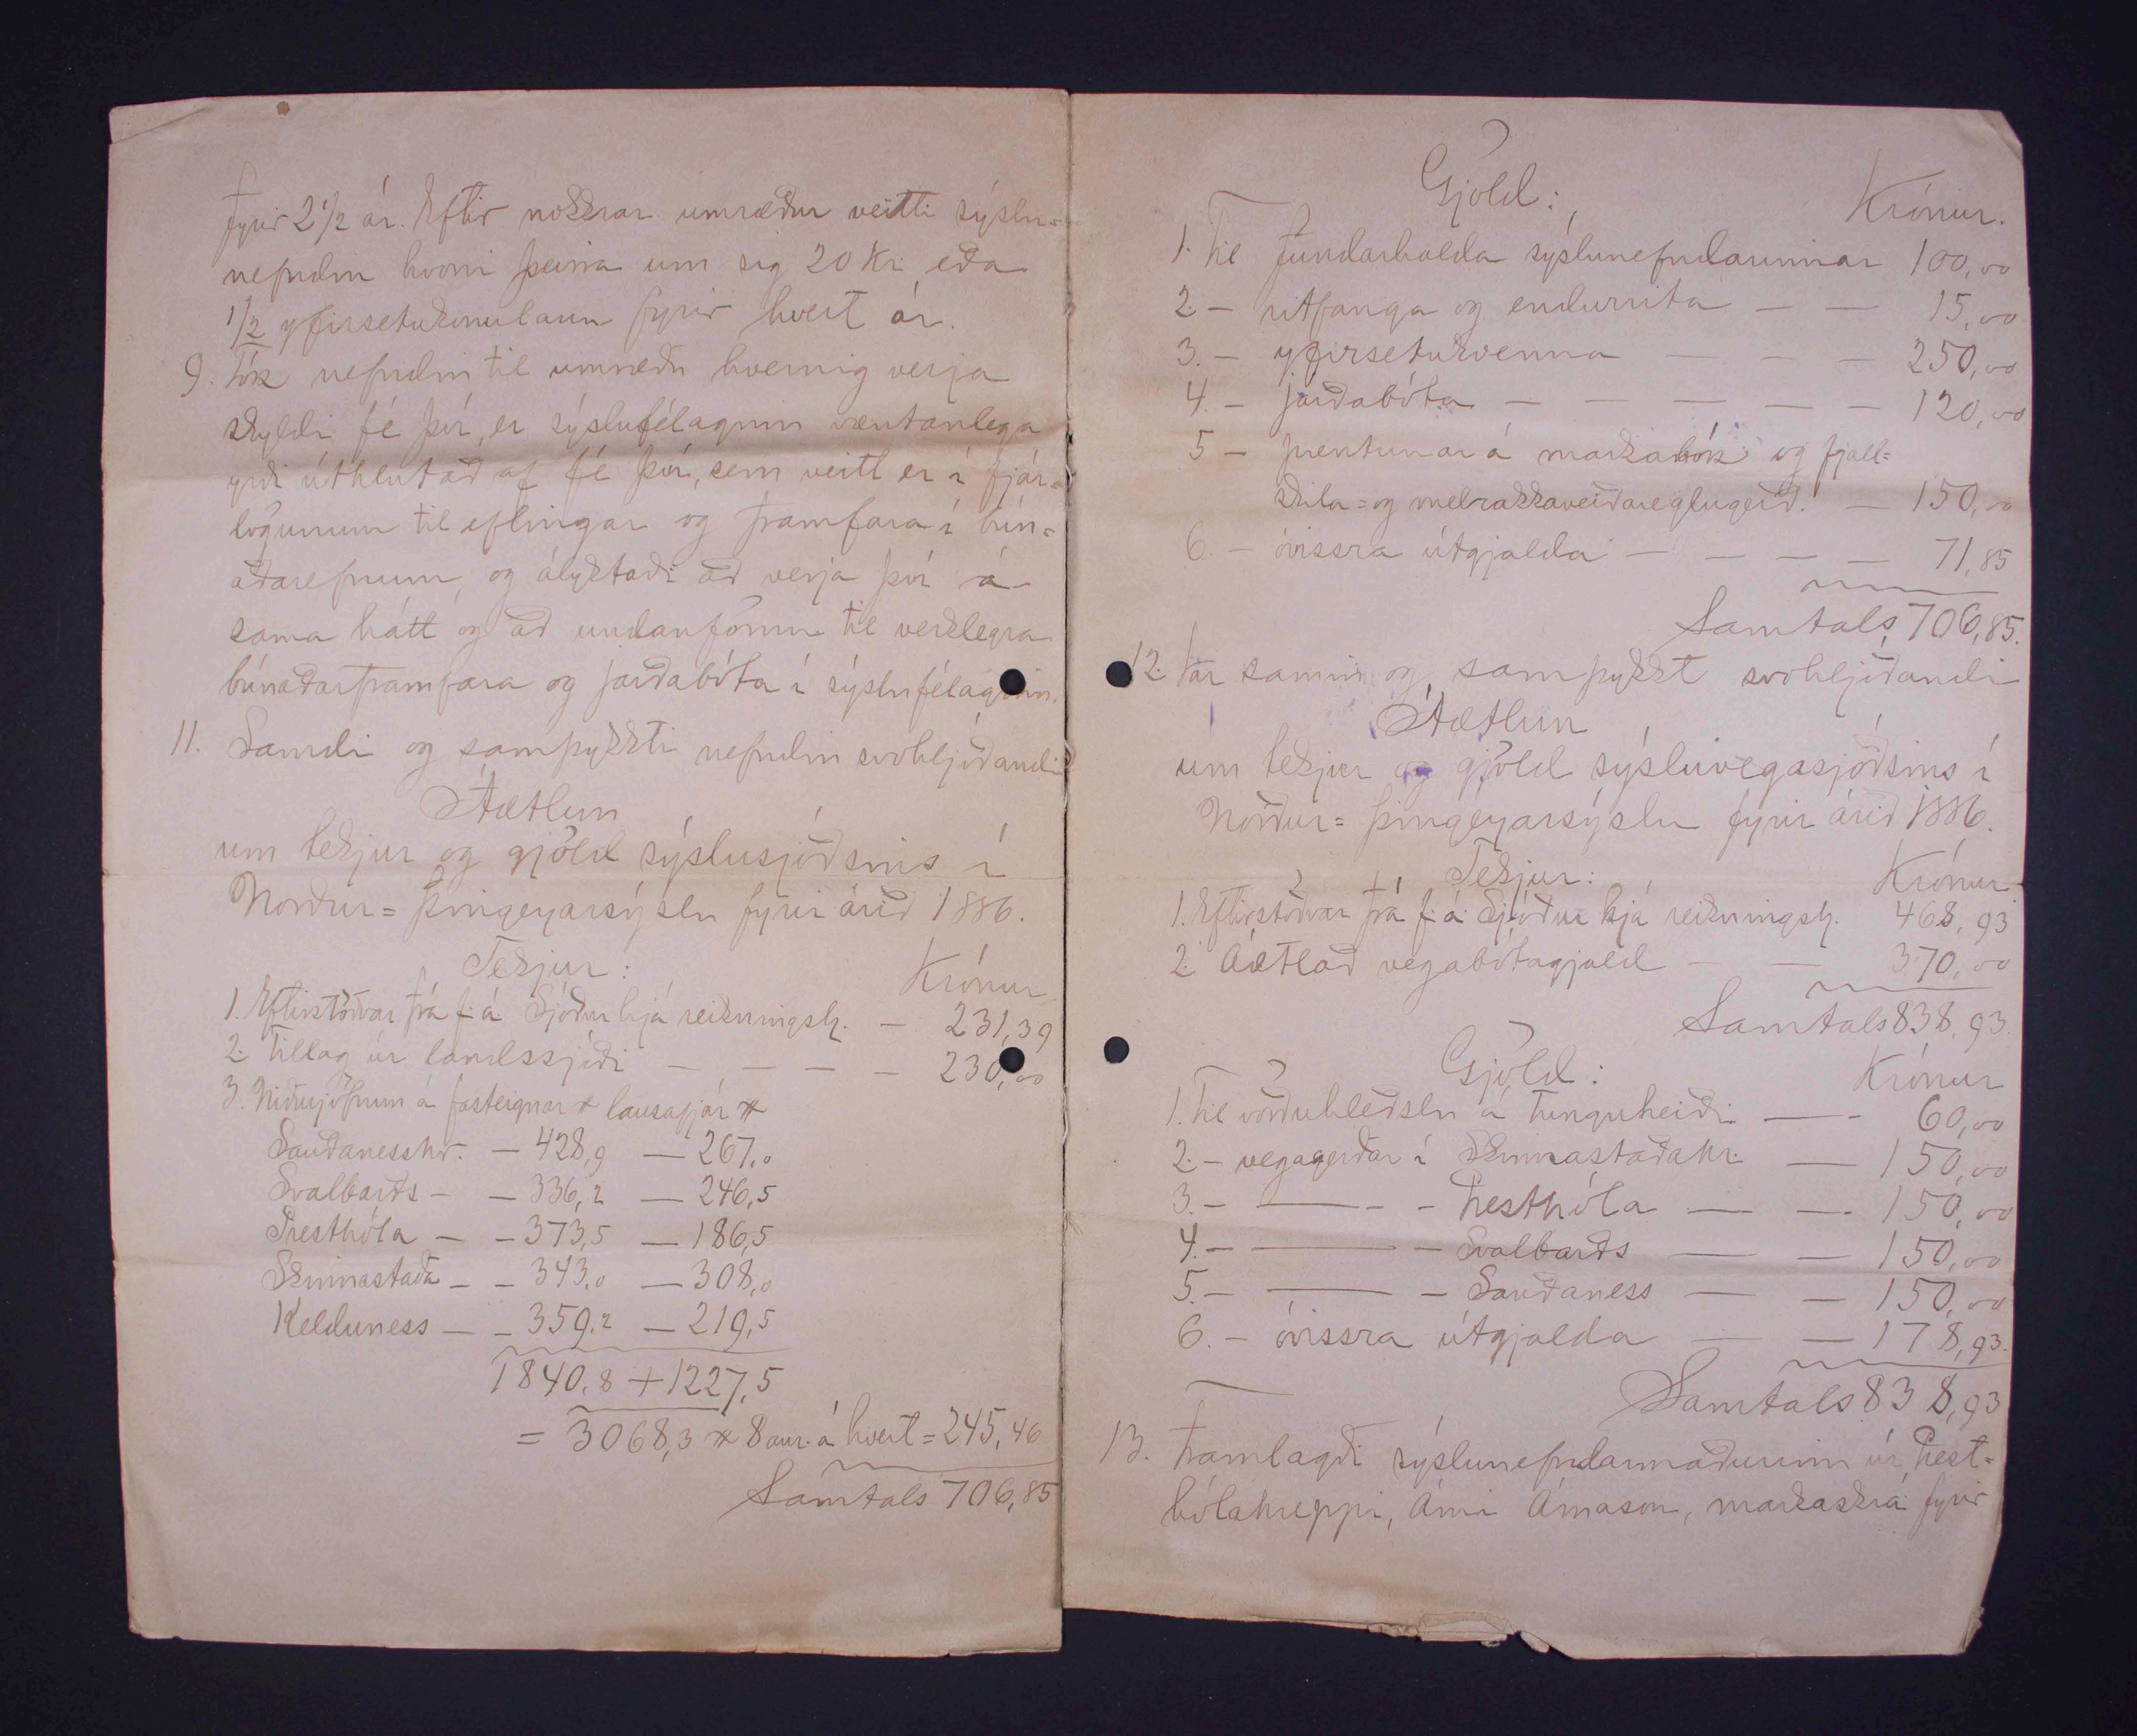 fyrir 2 1/2 ár. Eftir nokkrar umræður veitti sýslu=
nefndin hvorri þeirra um sig 20 kr. eða
1/2 yfirsetukonulaun fyrir hvert ár.
9. Tók nefndin til umræðu hvernig verja
skyldi fé því, er sýslufélaginu væntanlega
yrði úthlutað af fé því, sem veitt er í fjár=
lögunum til eflingar og framfara í bún=
aðarefnum, og ályktaði að verja því á
sama hátt og að undanförnu til verklegra
búnaðarframfara og jarðabóta í sýslufélaginu.
11. Samdi og samþykkti nefndin svohljóðandi
Áætlun
um tekjur og gjöld sýslusjóðsins í
Norður=Þingeyarsýslu fyrir árið 1886.
Tekjur: Krónur
1. Eftirstöðvar frá f.á. Sjóður hjá reikningsh. — 231,39
2. Tillag úr landssjóði — — — — 230,00
3. Niðurjöfnun á fasteignar # lausafjár #
Sauðanesshr. — 428,9 — 267,0
Svalbarðs — — 336,2 — 246,5
Presthóla — — 373,5 — 186,5
Skinnastaða — — 343,0 — 308,0
Kelduness — — 359,2 — 219,5
1840,8 + 1227,5
= 3068,3 # 8 aur. á hvert = 245,46
Samtals 706,85
Gjöld: Krónur.
1. Til fundarhalda sýslunefndarinnar 100,00
2 — ritfanga og endurrita — — 15,00
3. — yfirsetukvenna — — — 250,00
4. — jarðabóta — — — — — 120,00
5 — prentunar á markabók og fjall=
skila= og melrakkaveiðareglugerð. — 150,00
6. — óvissra útgjalda — — — — 71,85
Samtals 706,85.
12. Var samin og samþykkt svohljóðandi
Áætlun
um tekjur og gjöld sýsluvegasjóðsins í
Norður=Þingeyarsýslu fyrir árið 1886.
Tekjur: Krónur
1. Eftirstöðvar frá f.á. Sjóður hjá reikningsh. 468,93
2. Áætlað vegabótagjald — — 370,00
Samtals 838,93.
Gjöld: Krónur
1. Til vörðuhleðslu á Tunguheiði — - 60,00
2. — vegagerðar í Skinnastaðahr. — 150,00
3. — — - - Presthóla — — 150,00
4. — — — Svalbarðs — — 150,00
5. — — — Sauðaness — — 150,00
6. — óvissra útgjalda — — 178,93.
Samtals 838,93
13. Framlagði sýslunefndarmaðurinn úr Prest=
hólahreppi, Árni Árnason, markaskrá fyrir